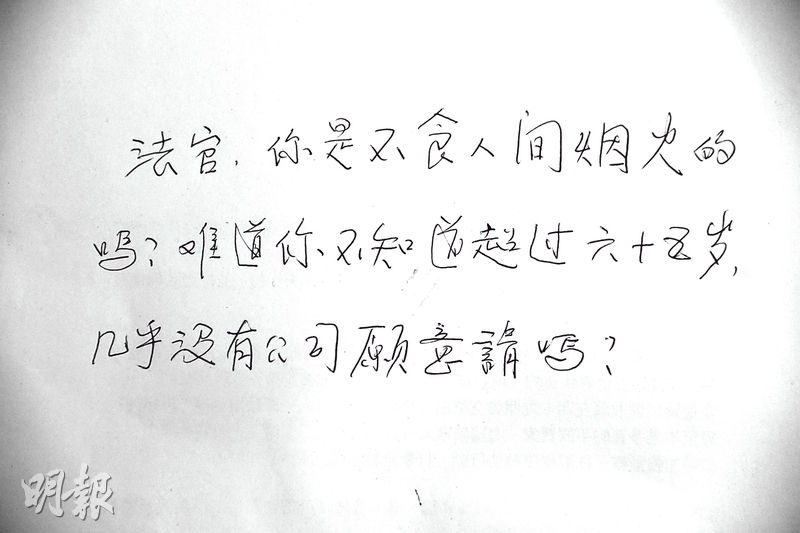 法官,你是不食人间烟火的
吗?难道你不知道超过六十五岁,
几乎没有公司愿意請吗?
明報